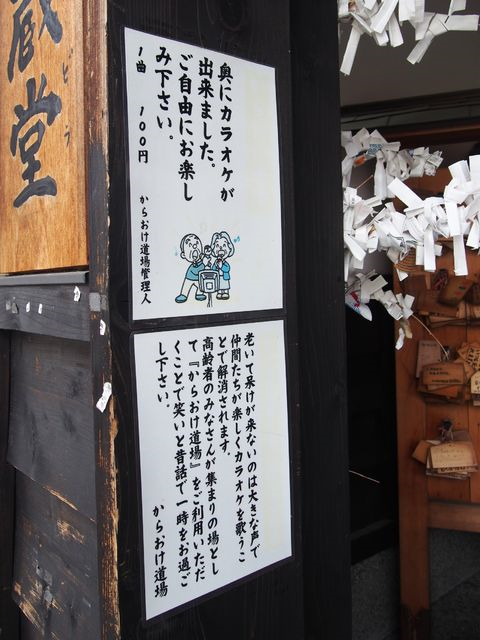 蔵堂
ビラ
奥にカラオケが
出来ました。
ご自由にお楽し
み下さい。
1曲 100円
からおけ道場管理人
老いて呆けが来ないのは大きな声で
仲間たちが楽しくカラオケを歌うこ
とで解消されます。
高齢者のみなさんが集まりの場とし
て『からおけ道場』をご利用いただ
くことで笑いと昔話で一時をお過ご
し下さい。
からおけ道場